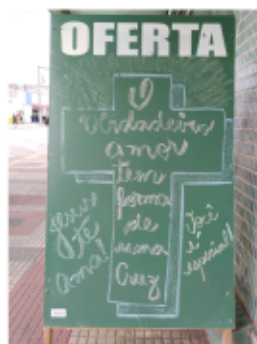 OFERTA
O
Verdadeiro
amor
tem
forma
de
uma
Cruz
Jesus
te
ama!
Você
é
especial!